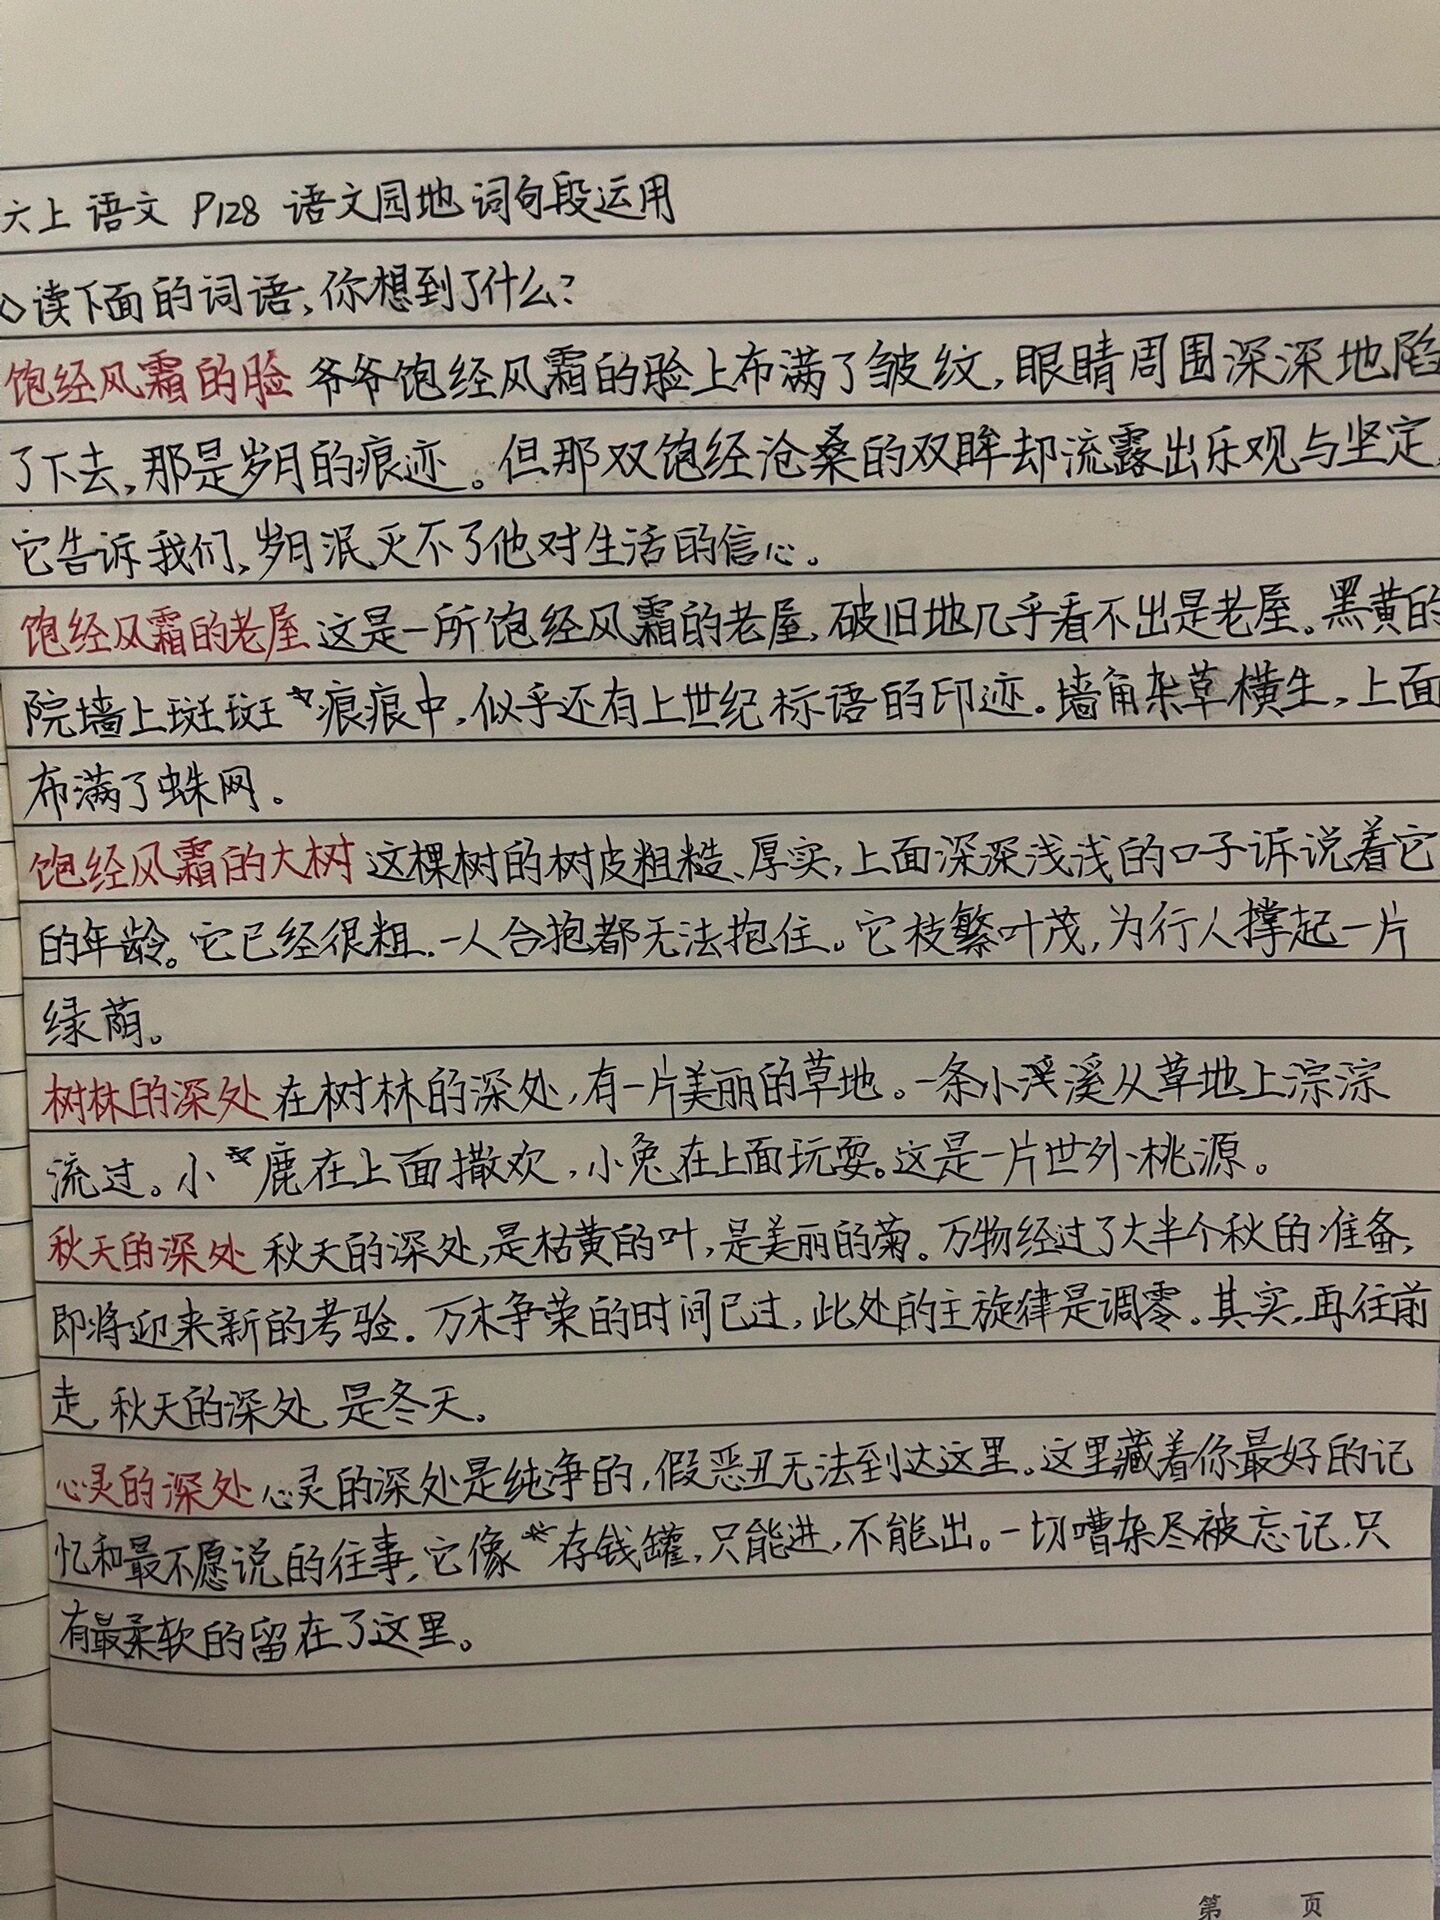 六上 语文 P128 语文园地 词句段运用
◇读下面的词语,你想到了什么?
饱经风霜的脸 爷爷饱经风霜的脸上布满了皱纹,眼睛周围深深地陷
了下去,那是岁月的痕迹。但那双饱经沧桑的双眸却流露出乐观与坚定,
它告诉我们,岁月泯灭不了他对生活的信心。
饱经风霜的老屋 这是一所饱经风霜的老屋,破旧地几乎看不出是老屋。黑黄的
院墙上斑斑痕痕中,似乎还有上世纪标语的印迹。墙角杂草横生,上面
布满了蛛网。
饱经风霜的大树 这棵树的树皮粗糙、厚实,上面深深浅浅的口子诉说着它
的年龄。它已经很粗,一人合抱都无法抱住。它枝繁叶茂,为行人撑起一片
绿荫。
树林的深处 在树林的深处,有一片美丽的草地。一条小溪从草地上淙淙
流过。小鹿在上面撒欢,小兔在上面玩耍。这是一片世外桃源。
秋天的深处 秋天的深处,是枯黄的叶,是美丽的菊。万物经过了大半个秋的准备,
即将迎来新的考验。万木争荣的时间已过,此处的主旋律是调零。其实,再往前
走,秋天的深处,是冬天。
心灵的深处 心灵的深处是纯净的,假恶丑无法到达这里。这里藏着你最好的记
忆和最不愿说的往事,它像存钱罐,只能进,不能出。一切嘈杂尽被忘记,只
有最柔软的留在了这里。
第 页